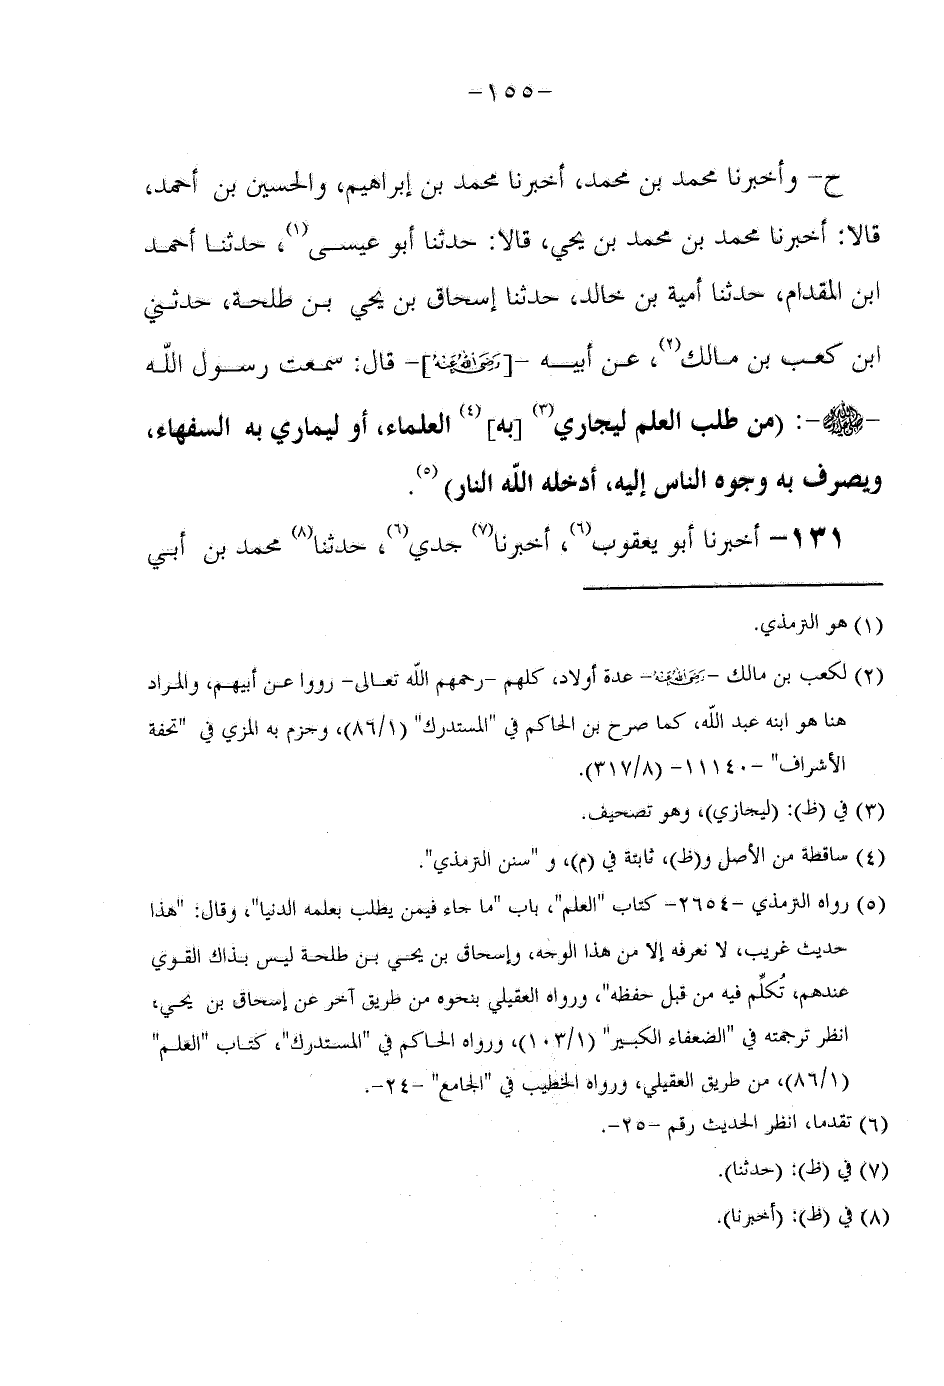 -١٥٥-
ح- وأخبرنا محمد بن محمد، أخبرنا محمد بن إبراهيم، والحسين بن أحمد،
قالا: أخبرنا محمد بن محمد بن يحي، قالا: حدثنا أبو عيسى(١)، حدثنا أحمد
ابن المقدام، حدثنا أمية بن خالد، حدثنا إسحاق بن يحي بن طلحة، حدثني
ابن كعب بن مالك(٢)، عن أبيه -[رضي الله عنه]- قال: سمعت رسول الله
-ﷺ-: (من طلب العلم ليجاري(٣) [به](٤) العلماء، أو ليماري به السفهاء،
ويصرف به وجوه الناس إليه، أدخله الله النار)(٥).
١٣١- أخبرنا أبو يعقوب(٦)، أخبرنا(٧) جدي(٦)، حدثنا(٨) محمد بن أبي
(١) هو الترمذي.
(٢) لكعب بن مالك -رضي الله عنه- عدة أولاد، كلهم -رحمهم الله تعالى- رووا عن أبيهم، والمراد
هنا هو ابنه عبد الله، كما صرح بن الحاكم في "المستدرك" (٨٦/١)، وجزم به المزي في "تحفة
الأشراف" -١١١٤٠- (٣١٧/٨).
(٣) في (ظ): (ليجازي)، وهو تصحيف.
(٤) ساقطة من الأصل و(ظ)، ثابتة في (م)، و "سنن الترمذي".
(٥) رواه الترمذي -٢٦٥٤- كتاب "العلم"، باب "ما جاء فيمن يطلب بعلمه الدنيا"، وقال: "هذا
حديث غريب، لا نعرفه إلا من هذا الوجه، وإسحاق بن يحي بن طلحة ليس بذاك القوي
عندهم، تُكلِّم فيه من قبل حفظه"، ورواه العقيلي بنحوه من طريق آخر عن إسحاق بن يحي،
انظر ترجمته في "الضعفاء الكبير" (١٠٣/١)، ورواه الحاكم في "المستدرك"، كتاب "العلم"
(٨٦/١)، من طريق العقيلي، ورواه الخطيب في "الجامع" -٢٤-.
(٦) تقدما، انظر الحديث رقم -٢٥-.
(٧) في (ظ): (حدثنا).
(٨) في (ظ): (أخبرنا).